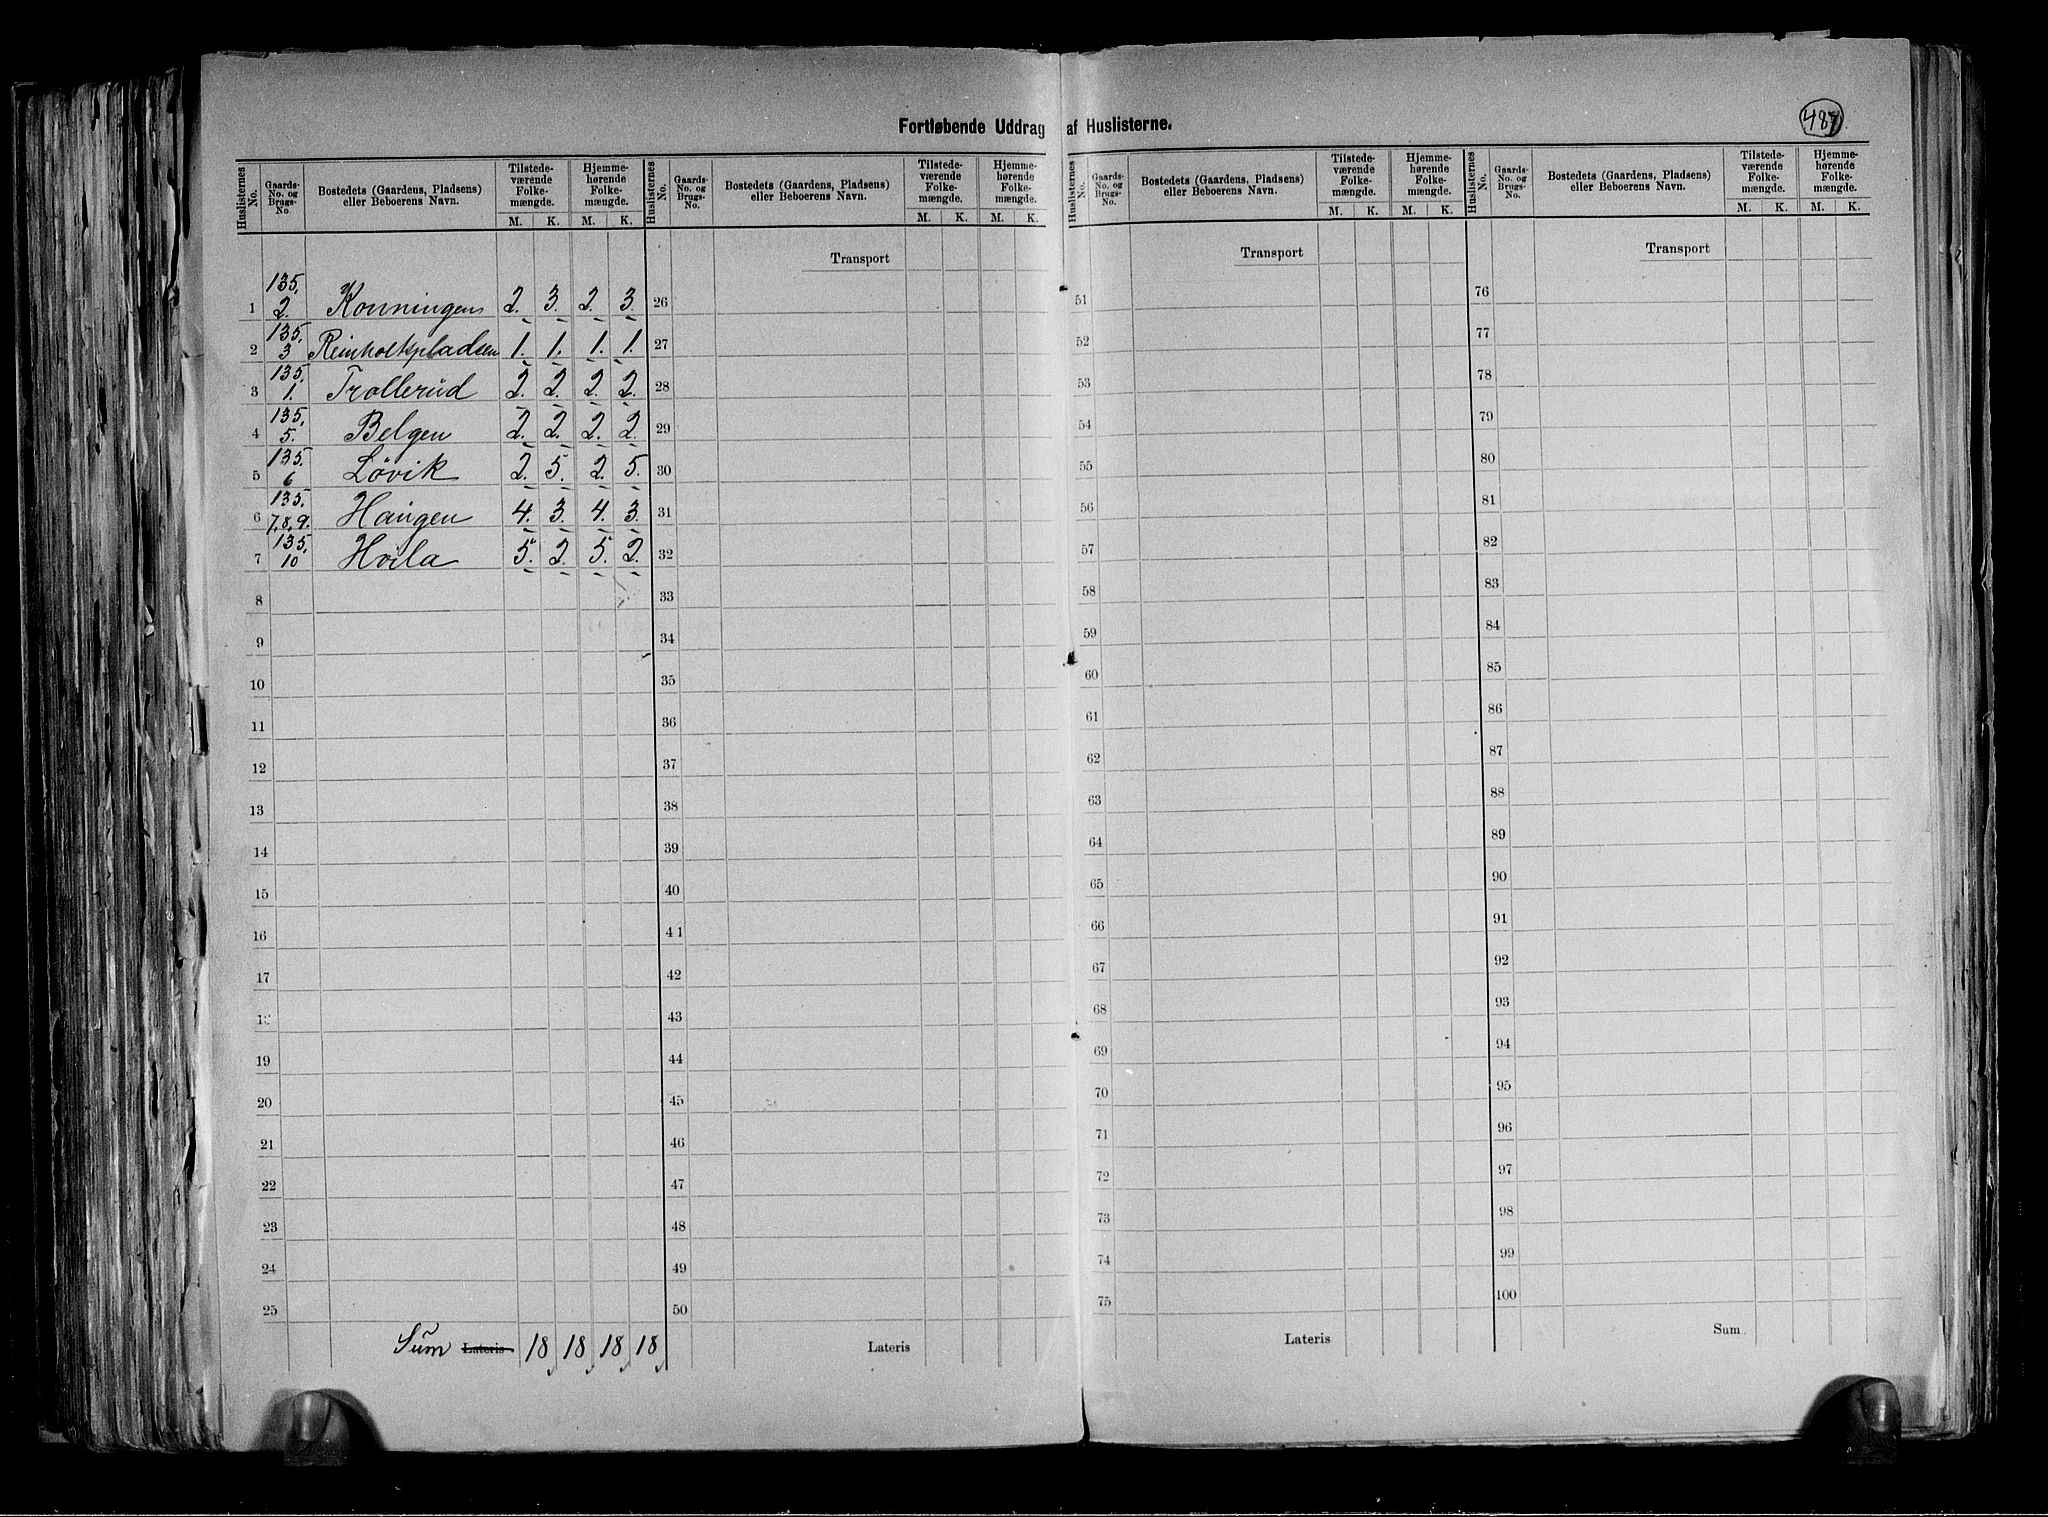 Fortløbende Uddrag af Huslisterne.
487
Huslisternes No. | Gaards-No. og Brugs-No. | Bostedets (Gaardens, Pladsens) eller Beboerens Navn. | Tilstedeværende Folkemængde. M. K. | Hjemmehørende Folkemængde. M. K.
Huslisternes No. | Gaards-No. og Brugs-No. | Bostedets (Gaardens, Pladsens) eller Beboerens Navn. | Tilstedeværende Folkemængde. M. K. | Hjemmehørende Folkemængde. M. K.
Huslisternes No. | Gaards-No. og Brugs-No. | Bostedets (Gaardens, Pladsens) eller Beboerens Navn. | Tilstedeværende Folkemængde. M. K. | Hjemmehørende Folkemængde. M. K.
Huslisternes No. | Gaards-No. og Brugs-No. | Bostedets (Gaardens, Pladsens) eller Beboerens Navn. | Tilstedeværende Folkemængde. M. K. | Hjemmehørende Folkemængde. M. K.
1 135. 2. Konningen 2. 3. 2. 3.
2 135. 3 Reinholtpladsen 1. 1. 1. 1.
3 135. 1. Trollerud 2. 2. 2. 2.
4 135. 5. Belgen 2. 2. 2. 2.
5 135. 6 Løvik 2. 5. 2. 5.
6 135. 7,8,9. Haugen 4. 3. 4. 3.
7 135. 10 Hvila 5. 2. 5. 2.
8
9
10
11
12
13
14
15
16
17
18
19
20
21
22
23
24
25
Sum Lateris 18 18 18 18
Transport
26
27
28
29
30
31
32
33
34
35
36
37
38
39
40
41
42
43
44
45
46
47
48
49
50
Lateris
Transport
51
52
53
54
55
56
57
58
59
60
61
62
63
64
65
66
67
68
69
70
71
72
73
74
75
Lateris
Transport
76
77
78
79
80
81
82
83
84
85
86
87
88
89
90
91
92
93
94
95
96
97
98
99
100
Sum